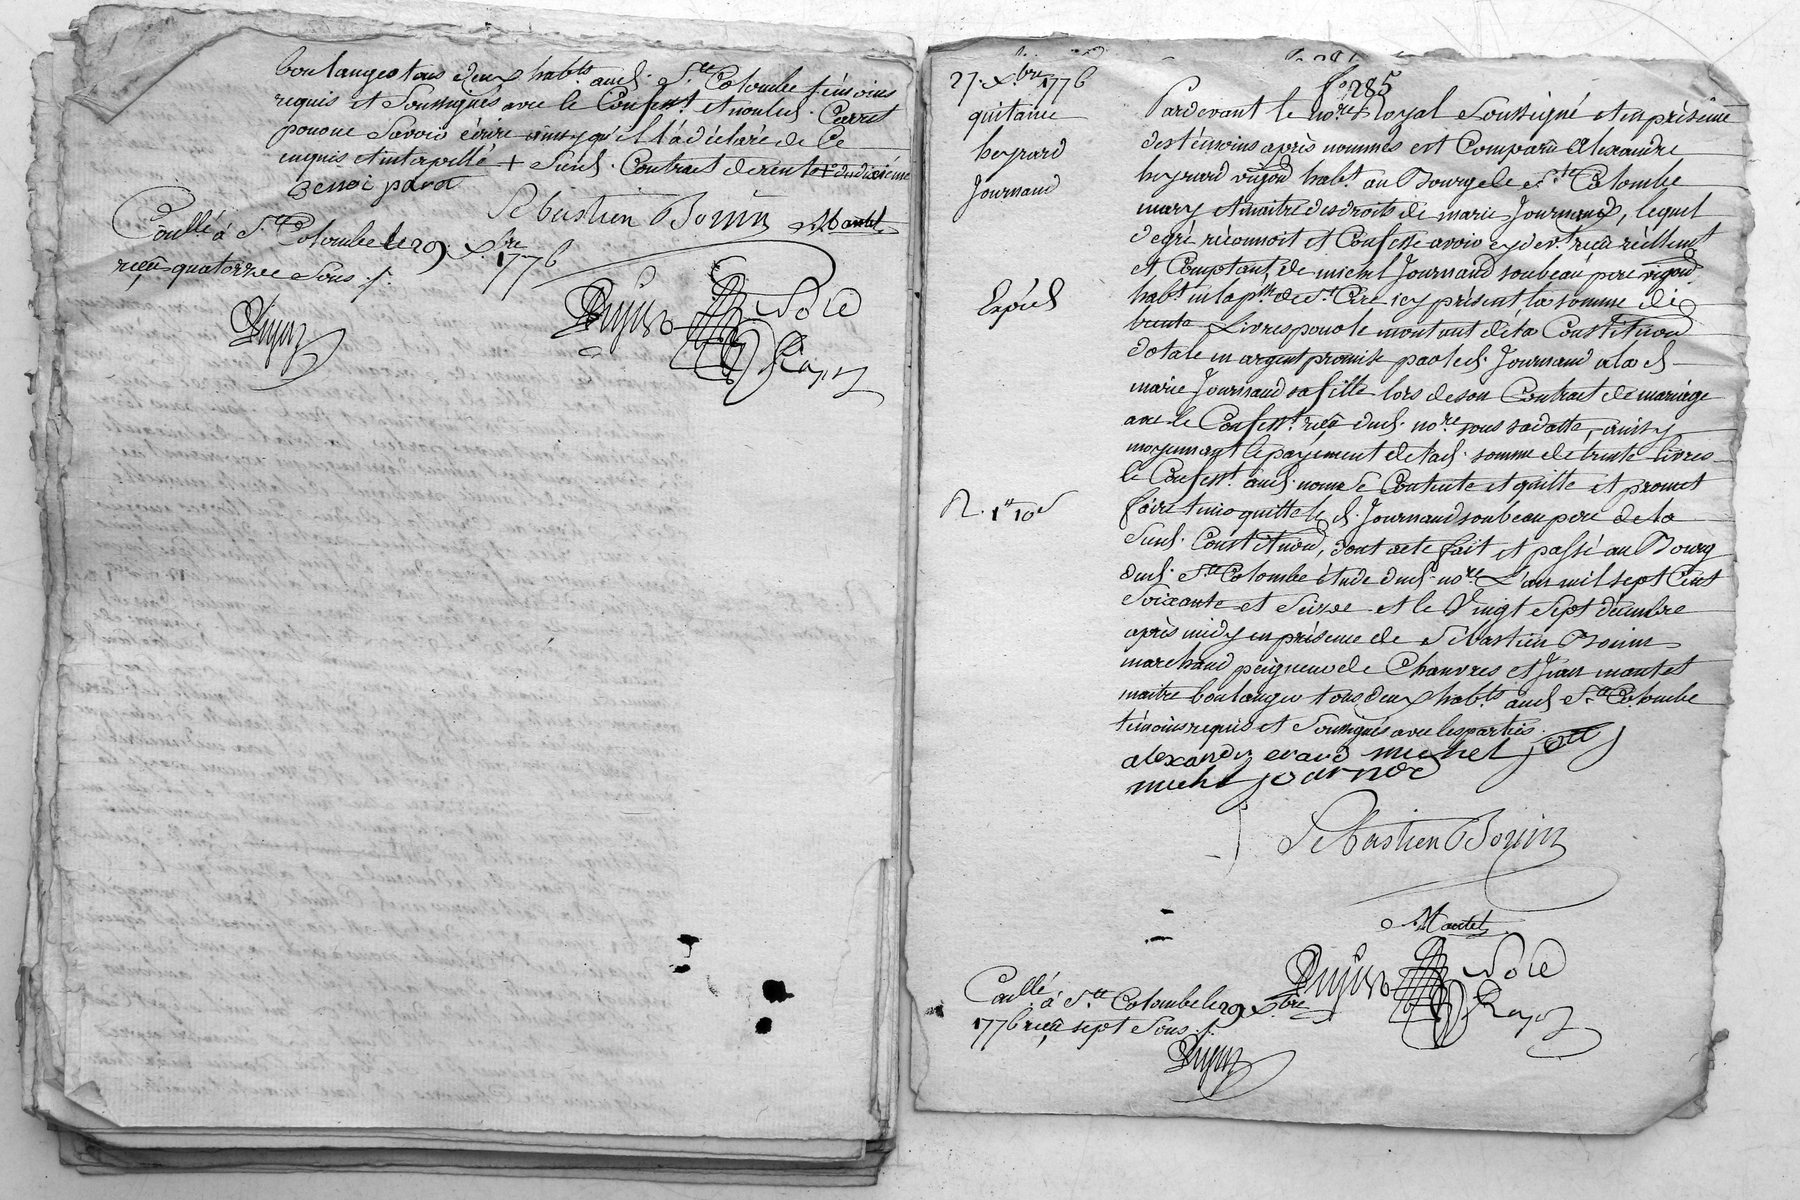 boulanger tous deux habts aud. Ste Colombe temoins
requis et soussignés avec le Confesst et non led. Carret
pour ne savoir écrire ainsy qu'il l'a déclaré de ce
enquis et interpellé + Susd. Contract de rente + du dixiéme
Sebastien Bonin Mantel
Conllé á Ste Colombe le 29 Xbre 1776
reçu quatorze sous
27. Xbre 1776
quitance
heyrard
Journaud
Expéd
R. 1tt 10s
fo 285
Pardevant le nore Royal Soussigné et en présence
des témoins après nommés est Comparu alexandre
heyrard vigon habt au Bourg de Ste Colombe
mary et maitre des droits de marie Journaud, lequel
de gré réconnoit et Confesse avoir cy devt reçu réellement
et Comptant de michel Journaud son beau pere vigon
habt en la psse de St Cire icy présent la somme de
trente Livres pour le montant de la Constitution
dotale en argent promise par led. Journaud a lad
marie Journaud sa fille lors de son Contract de mariage
avec le Confesst reçu dud. nore sous sa datte, ainsy
moyennant le payement de lad. somme de trente livres
le Confesst aud. nom se Contente et quitte et promet
faire tenir quitte led. Journaud son beau pere de la
Susd. Constitution, dont acte fait et passé au Bourg
dud. Ste Colombe étude dud. nore L'an mil sept Cent
Soixante et Seize et le Vingt Sept décembre
après midy en présence de Sébastien Bonin
marchand peigneur de Chanvres et Jean mantet
maitre boulanger tous deux habts aud Ste Colombe
témoins requis et soussignés avec les parties
alexandr evard michel
michel jornod
Sebastien Bonin
Mantel
Conllé á Ste Colombe le 29 Xbre
1776 reçu sept sous